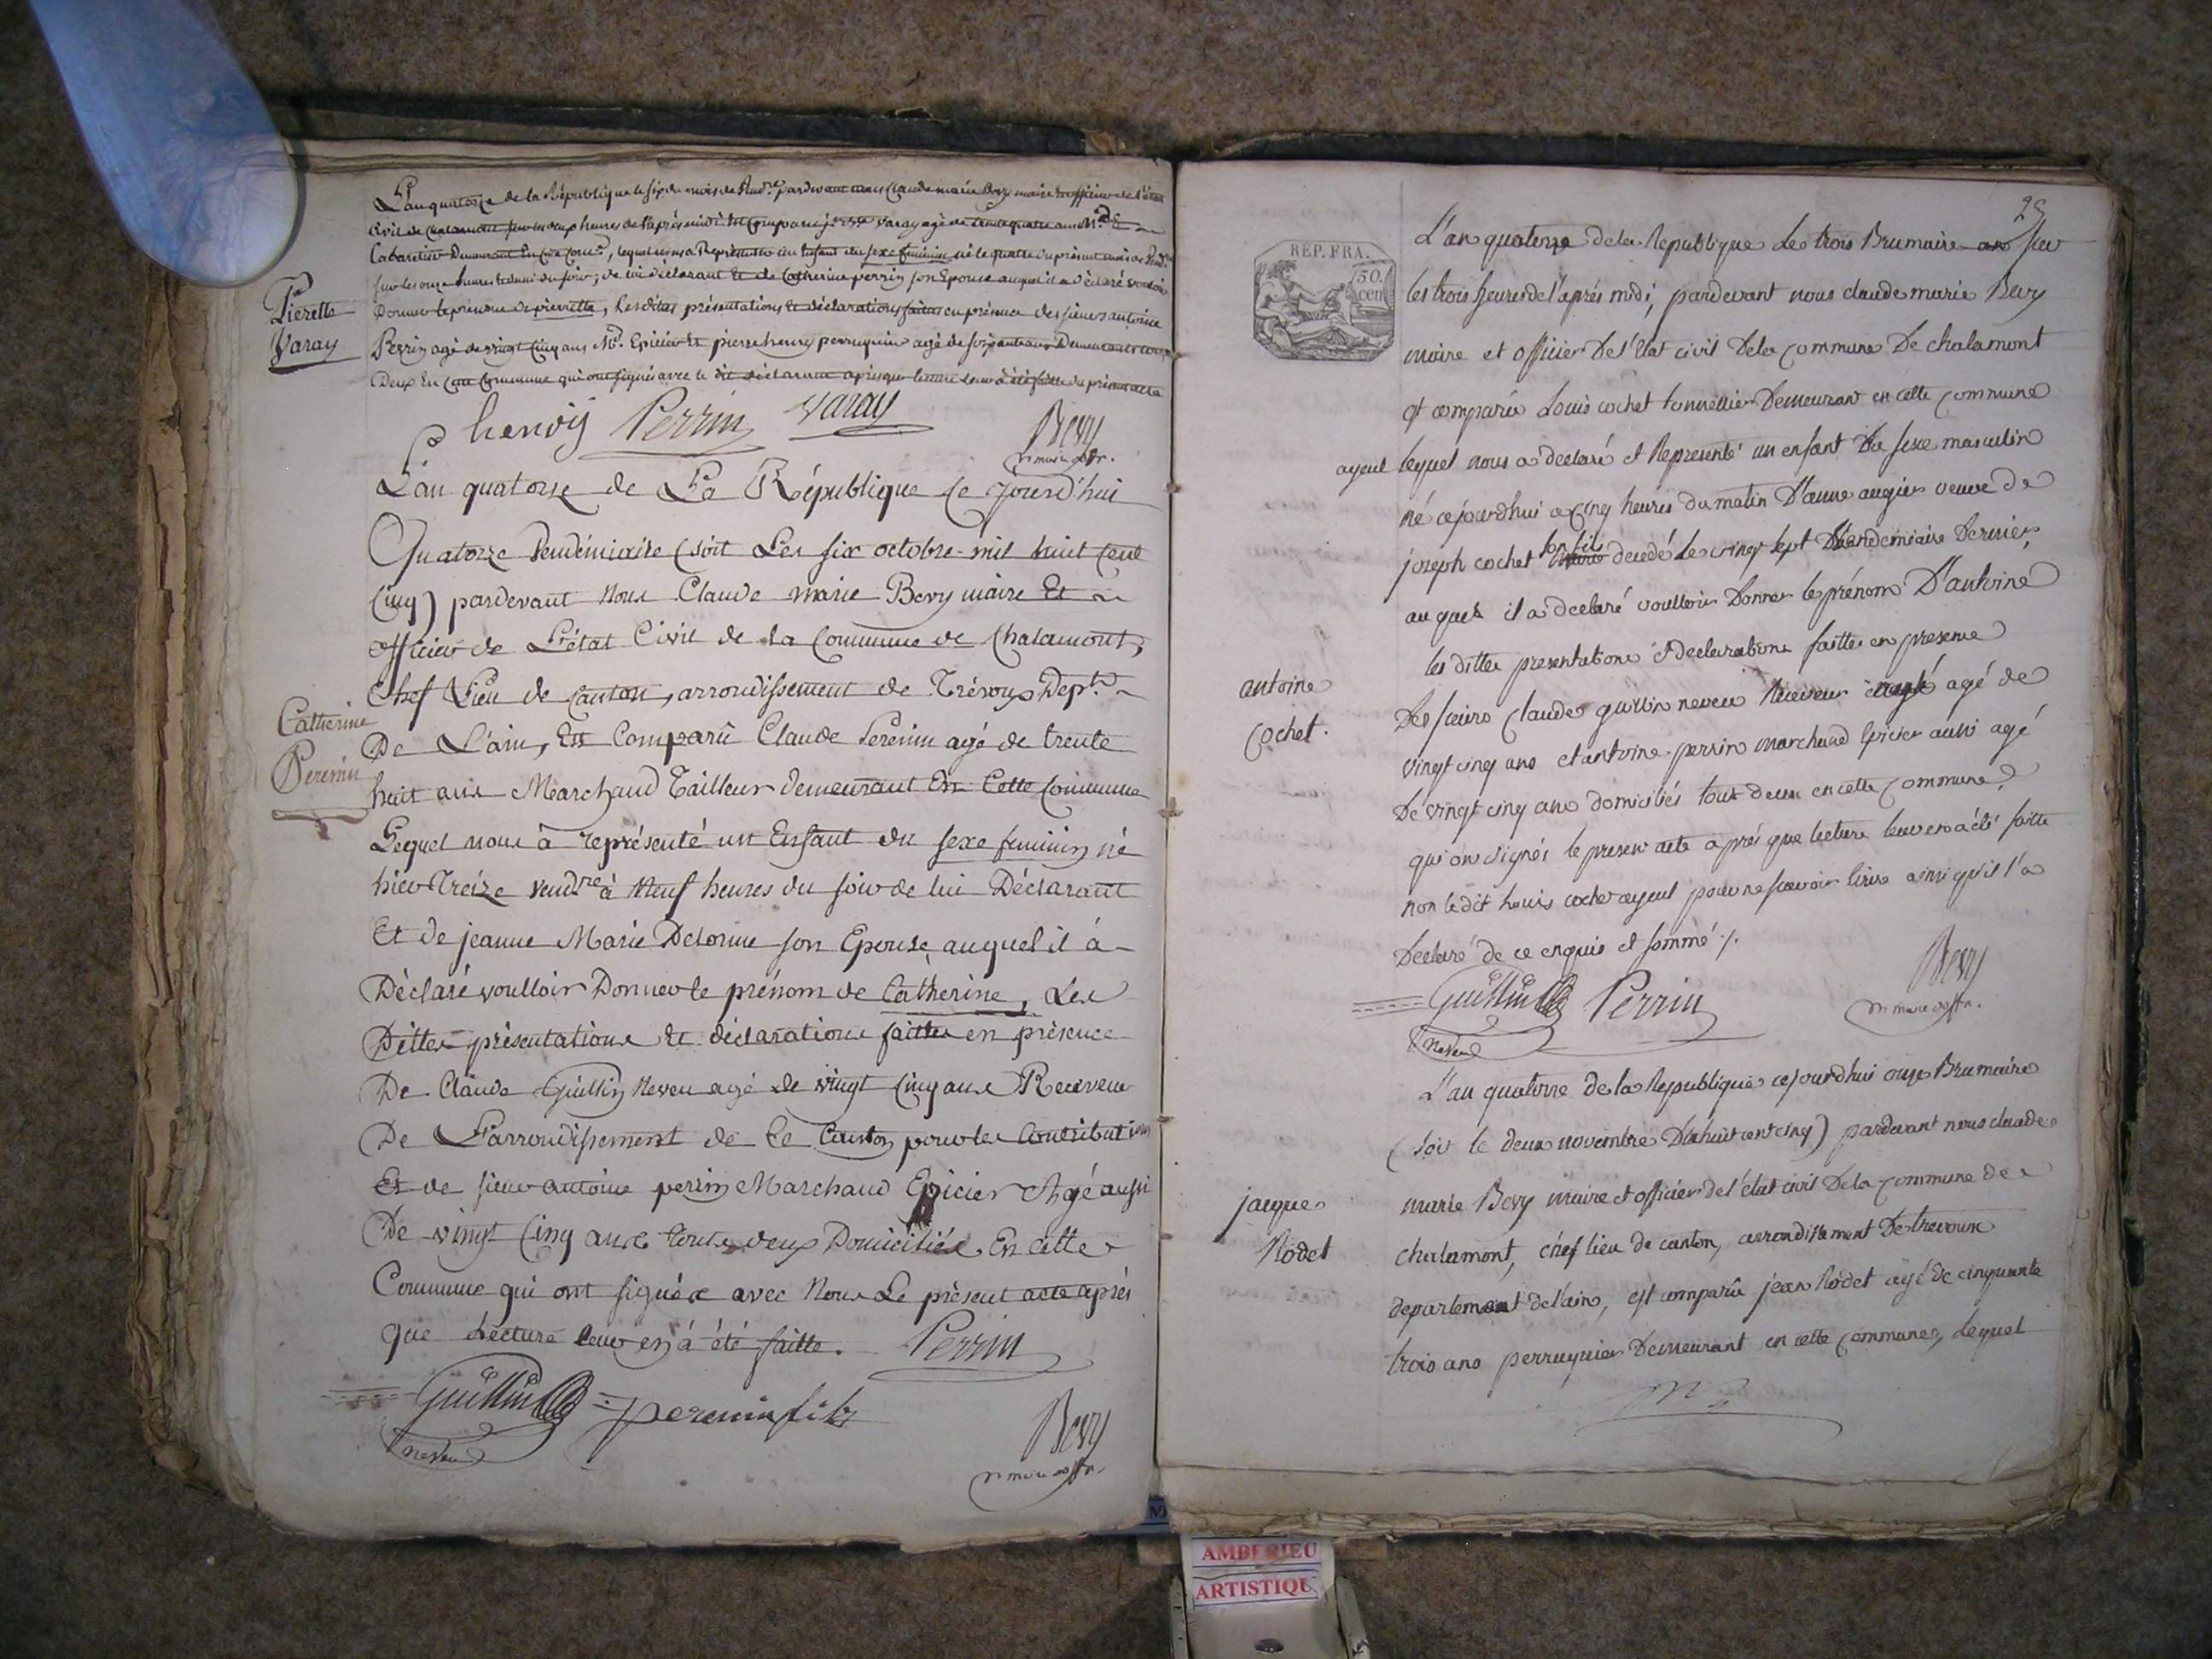 L'an quatorze de la République le six du mois de Vend.re pardevant nous Claude marie Bevy maire et officier de l'état
Civil de Chalamont sur les deux heures de l'après midi Est Comparu Varay agé de quatre ans M.d
Cabaretier Demeurant En Cette Com.e, lequel nous a Représenté un Enfant du sexe feminin né le quatre du présent mois de Vend.re
sur les onze heures du soir, de lui déclarant Et de Catherine perrin son Epouse auquel il a déclaré vouloir
Donner le prénom de pierrette, Lesdites présentations et déclarations faites en présence des sieurs antoine
Perrin agé de vingt Cinq ans M.d Epicier Et pierre henry perruquier agé de soixante ans Demeurants tous
Deux En Cette Commune qui ont signés avec le dit déclarant après que lecture leur a été faitte du présent acte
Pierette
Varay
P henry Perrin Varay
Bevy
L'an quatorze de La République Ce Jourd'hui
Quatorze Vendémiaire (soit Les six octobre mil huit Cent
Cinq) pardevant Nous Claude Marie Bevy maire Et
officier de L'état Civil de la Commune de Chalamont,
Chef Lieu de Canton, arrondissement de Trévoux Dep.t
De L'ain, Est Comparû Claude Perenin agé de trente
huit ans Marchand Tailleur demeurant En Cette Commune
Lequel nous à représenté un Enfant du sexe feminin né
hier Treize vend.re à Neuf heures du soir de lui Déclarant
Et de jeanne Marie Delorme son Epouse, auquel il à
Déclaré voulloir Donner le prénom de Catherine, Les
Dittes présentations Et déclarations faittes en présence
De Claude Guillin Neveu agé de vingt Cinq ans Receveur
De L'arrondissement de Ce Canton pour les Contributions
Et de sieur antoine perrin Marchand Epicier Agé aussi
De vingt Cinq ans tous deux Domiciliés En Cette
Commune qui ont signés avec Nous Le présent acte après
que Lecture leur en à été faitte. Perrin
Catherine
Perenin
Guillin = perenin fils
neveu
Bevy
29
REP. FRA.
50.
cen
L'an quatorze de la Republique le trois Brumaire an sur
les trois heures de l'aprés midi, pardevant nous claude marie Bevy
maire et officier De l'Etat civil De la commune De chalamont
est comparu Louis cochet tonnellier Demeurant en cette commune
ayeul lequel nous a declaré et Representé un enfant Du sexe masculin
né cejourdhui a cinq heures du matin D'anne augier veuve de
joseph cochet son fils decedé le vingt sept Vandemiaire Dernier,
auquel il a declaré voulloir Donner le prénom D'antoine
les dittes presentations et declarations faittes en presence
Des sieurs Claude guillin neveu Receveur agé de
vingt cinq ans et antoine perrin marchand Epicier aussi agé
De vingt cinq ans domiciliés tout deux en cette commune,
qui on signés le present acte aprés que lecture leur en a été faitte
non le dit Louis cochet ayeul pour ne sçavoir Ecrire ainsi qu'il l'a
Declaré de ce enquis et sommé ./.
antoine
cochet.
Guillin Perrin
neveu
Bevy
L'an quatorze de la Republique cejourdhui onze Brumaire
(soit le deux novembre Dixhuit cent cinq) pardevant nous claude
marie Bevy maire et officier de l'état civil De la commune de
chalamont, chef lieu de canton, arrondissement De trevoux
departement de l'ain, est comparu jean Rodet agé de cinquante
trois ans perruquier Demeurant en cette commune, lequel
jacque
Rodet
AMBERIEU
ARTISTIQU